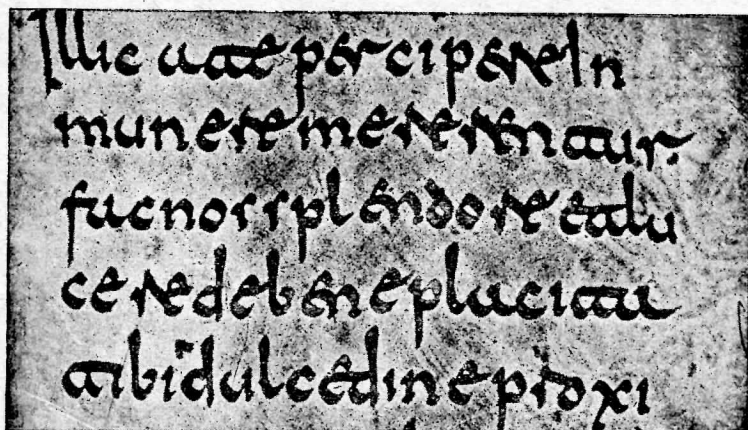 Illic a te percipere In
munere mererentur.
fac nos splendore et lu
cere de bene placita
tibi dulcedine proxi